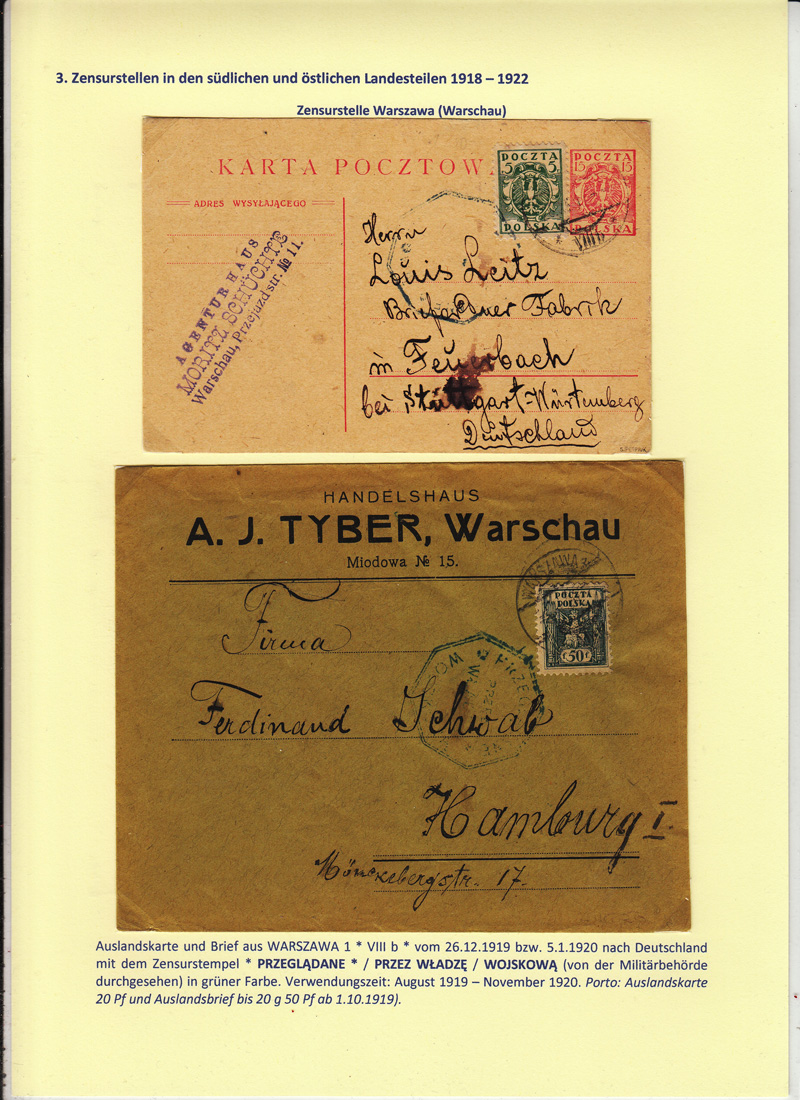 3. Zensurstellen in den südlichen und östlichen Landesteilen 1918 – 1922
Zensurstelle Warszawa (Warschau)
KARTA POCZTOWA
POCZTA
5 5
POLSKA
POCZTA
15 15
POLSKA
ADRES WYSYŁAJĄCEGO
AGENTUR HAUS
MORITZ SCHÜCHTE
Warschau, Przejazd str. № 11.
VIII b
Herrn
Louis Leitz
Fabrik
in Feuerbach
bei Stuttgart-Würtemberg
Deutschland
HANDELSHAUS
A. J. TYBER, Warschau
Miodowa № 15.
WARSZAWA
POCZTA
POLSKA
50
Firma
PRZEG
WOJ
Ferdinand Schwab
Hamburg I.
Mönckebergstr. 17.
Auslandskarte und Brief aus WARSZAWA 1 * VIII b * vom 26.12.1919 bzw. 5.1.1920 nach Deutschland
mit dem Zensurstempel * PRZEGLĄDANE * / PRZEZ WŁADZĘ / WOJSKOWĄ (von der Militärbehörde
durchgesehen) in grüner Farbe. Verwendungszeit: August 1919 – November 1920. Porto: Auslandskarte
20 Pf und Auslandsbrief bis 20 g 50 Pf ab 1.10.1919).